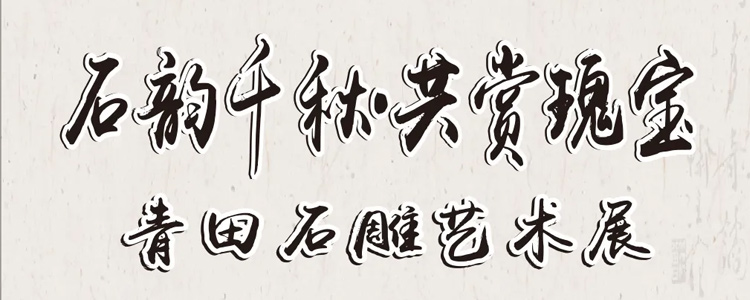 石韵千秋·共赏瑰宝
青田石雕艺术展